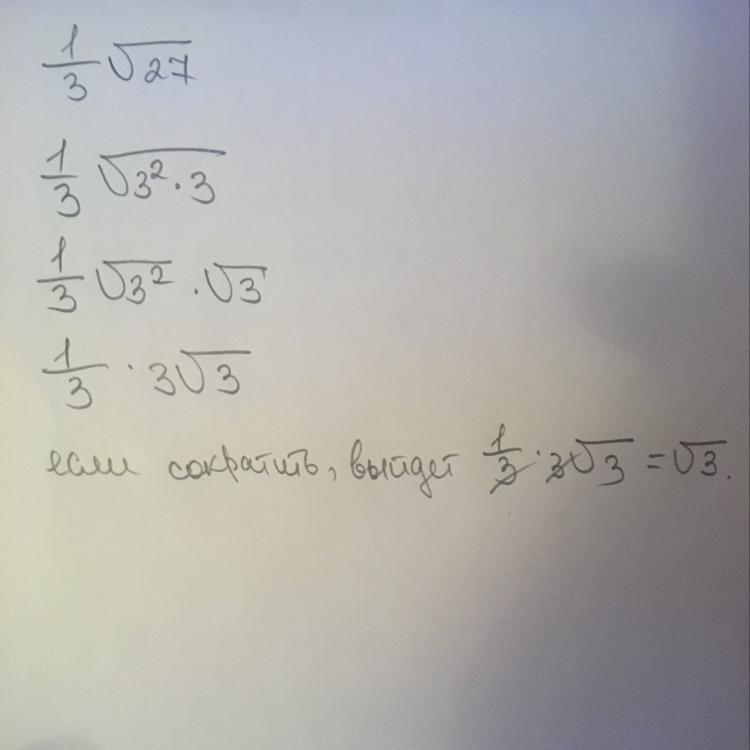 1/3 √27
1/3 √3² · 3
1/3 √3² · √3
1/3 · 3√3
если сократить, выйдет 1/3 · 3√3 = √3.